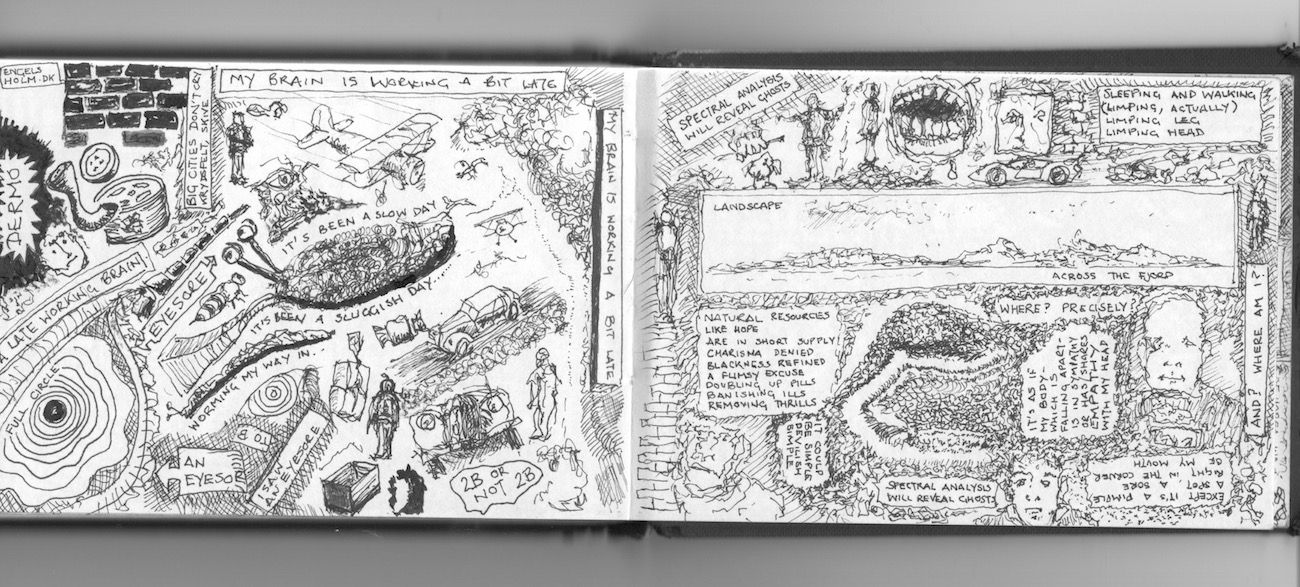 ENGELS
HOLM.DK
BIG CITIES DON'T CRY
KRYDSFELT, SKIVE
MY BRAIN IS WORKING A BIT LATE
MY BRAIN IS WORKING A BIT LATE
DERMO
A LATE WORKING BRAIN
EYESORE
IT'S BEEN A SLOW DAY &
IT'S BEEN A SLUGGISH DAY....
WORMING MY WAY IN...
FULL CIRCLE
& OI
AN
EYESOR
I SAY
AN EYESORE
2B OR
NOT 2B
SPECTRAL ANALYSIS
WILL REVEAL GHOSTS
SLEEPING AND WALKING
(LIMPING, ACTUALLY)
LIMPING LEG
LIMPING HEAD
LANDSCAPE
ACROSS THE FJORD
NATURAL RESOURCES
LIKE HOPE
ARE IN SHORT SUPPLY
CHARISMA DENIED
BLACKNESS REFINED
A FLIMSY EXCUSE
DOUBLING UP PILLS
BANISHING ILLS
REMOVING THRILLS
WHERE? PRECISELY!
AND? WHERE AM I?
IT'S AS IF
MY BODY-
WHICH IS
FALLING APART-
IS IN SYMPATHY
OR HAS/SHARES
EMPATHY
WITH MY HEAD
IT COULD
BE SIMPLE
SPECTRAL ANALYSIS
WILL REVEAL GHOSTS
EXCEPT IT'S A PIMPLE
A SPOT, SORE
RIGHT IN THE CORNER
OF MY MOUTH